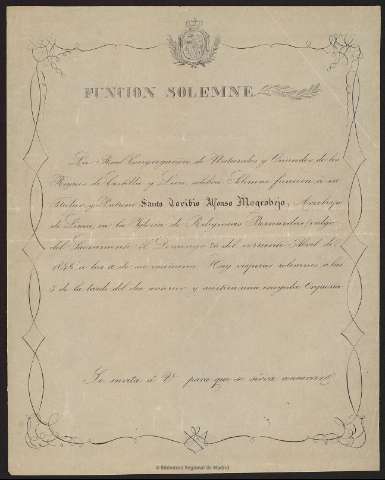 FUNCION SOLEMNE
La Real Congregacion de Naturales y Oriundos de los
Reynos de Castilla y Leon celebra Solemne funcion á su
titular y Patrono Santo Toribio Alfonso Mogrobejo, Arzobispo
de Lima, en la Iglesia de Religiosas Bernardas (vulgo)
del Sacramento el Domingo del corriente Abril de
á las de su mañana. Hay visperas solemnes á las
5 de la tarde del dia anterior y asistirá una escogida Orquesta.
Se invita á V. para que se sirva concurrir
© Biblioteca Regional de Madrid